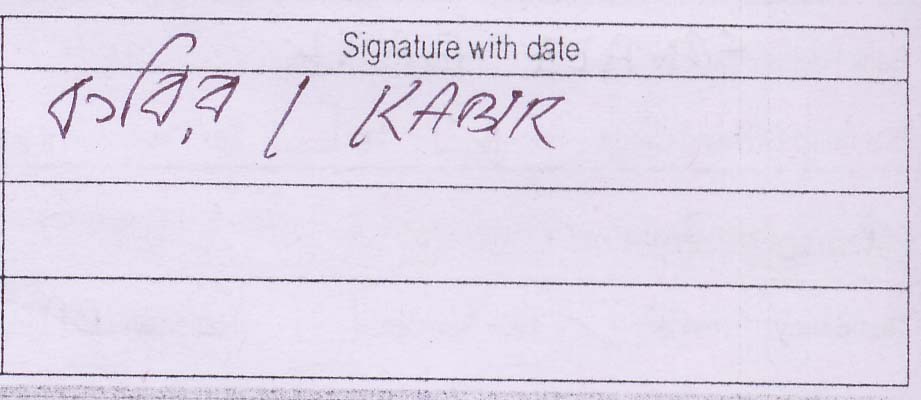 Signature with date
কবির / KABIR